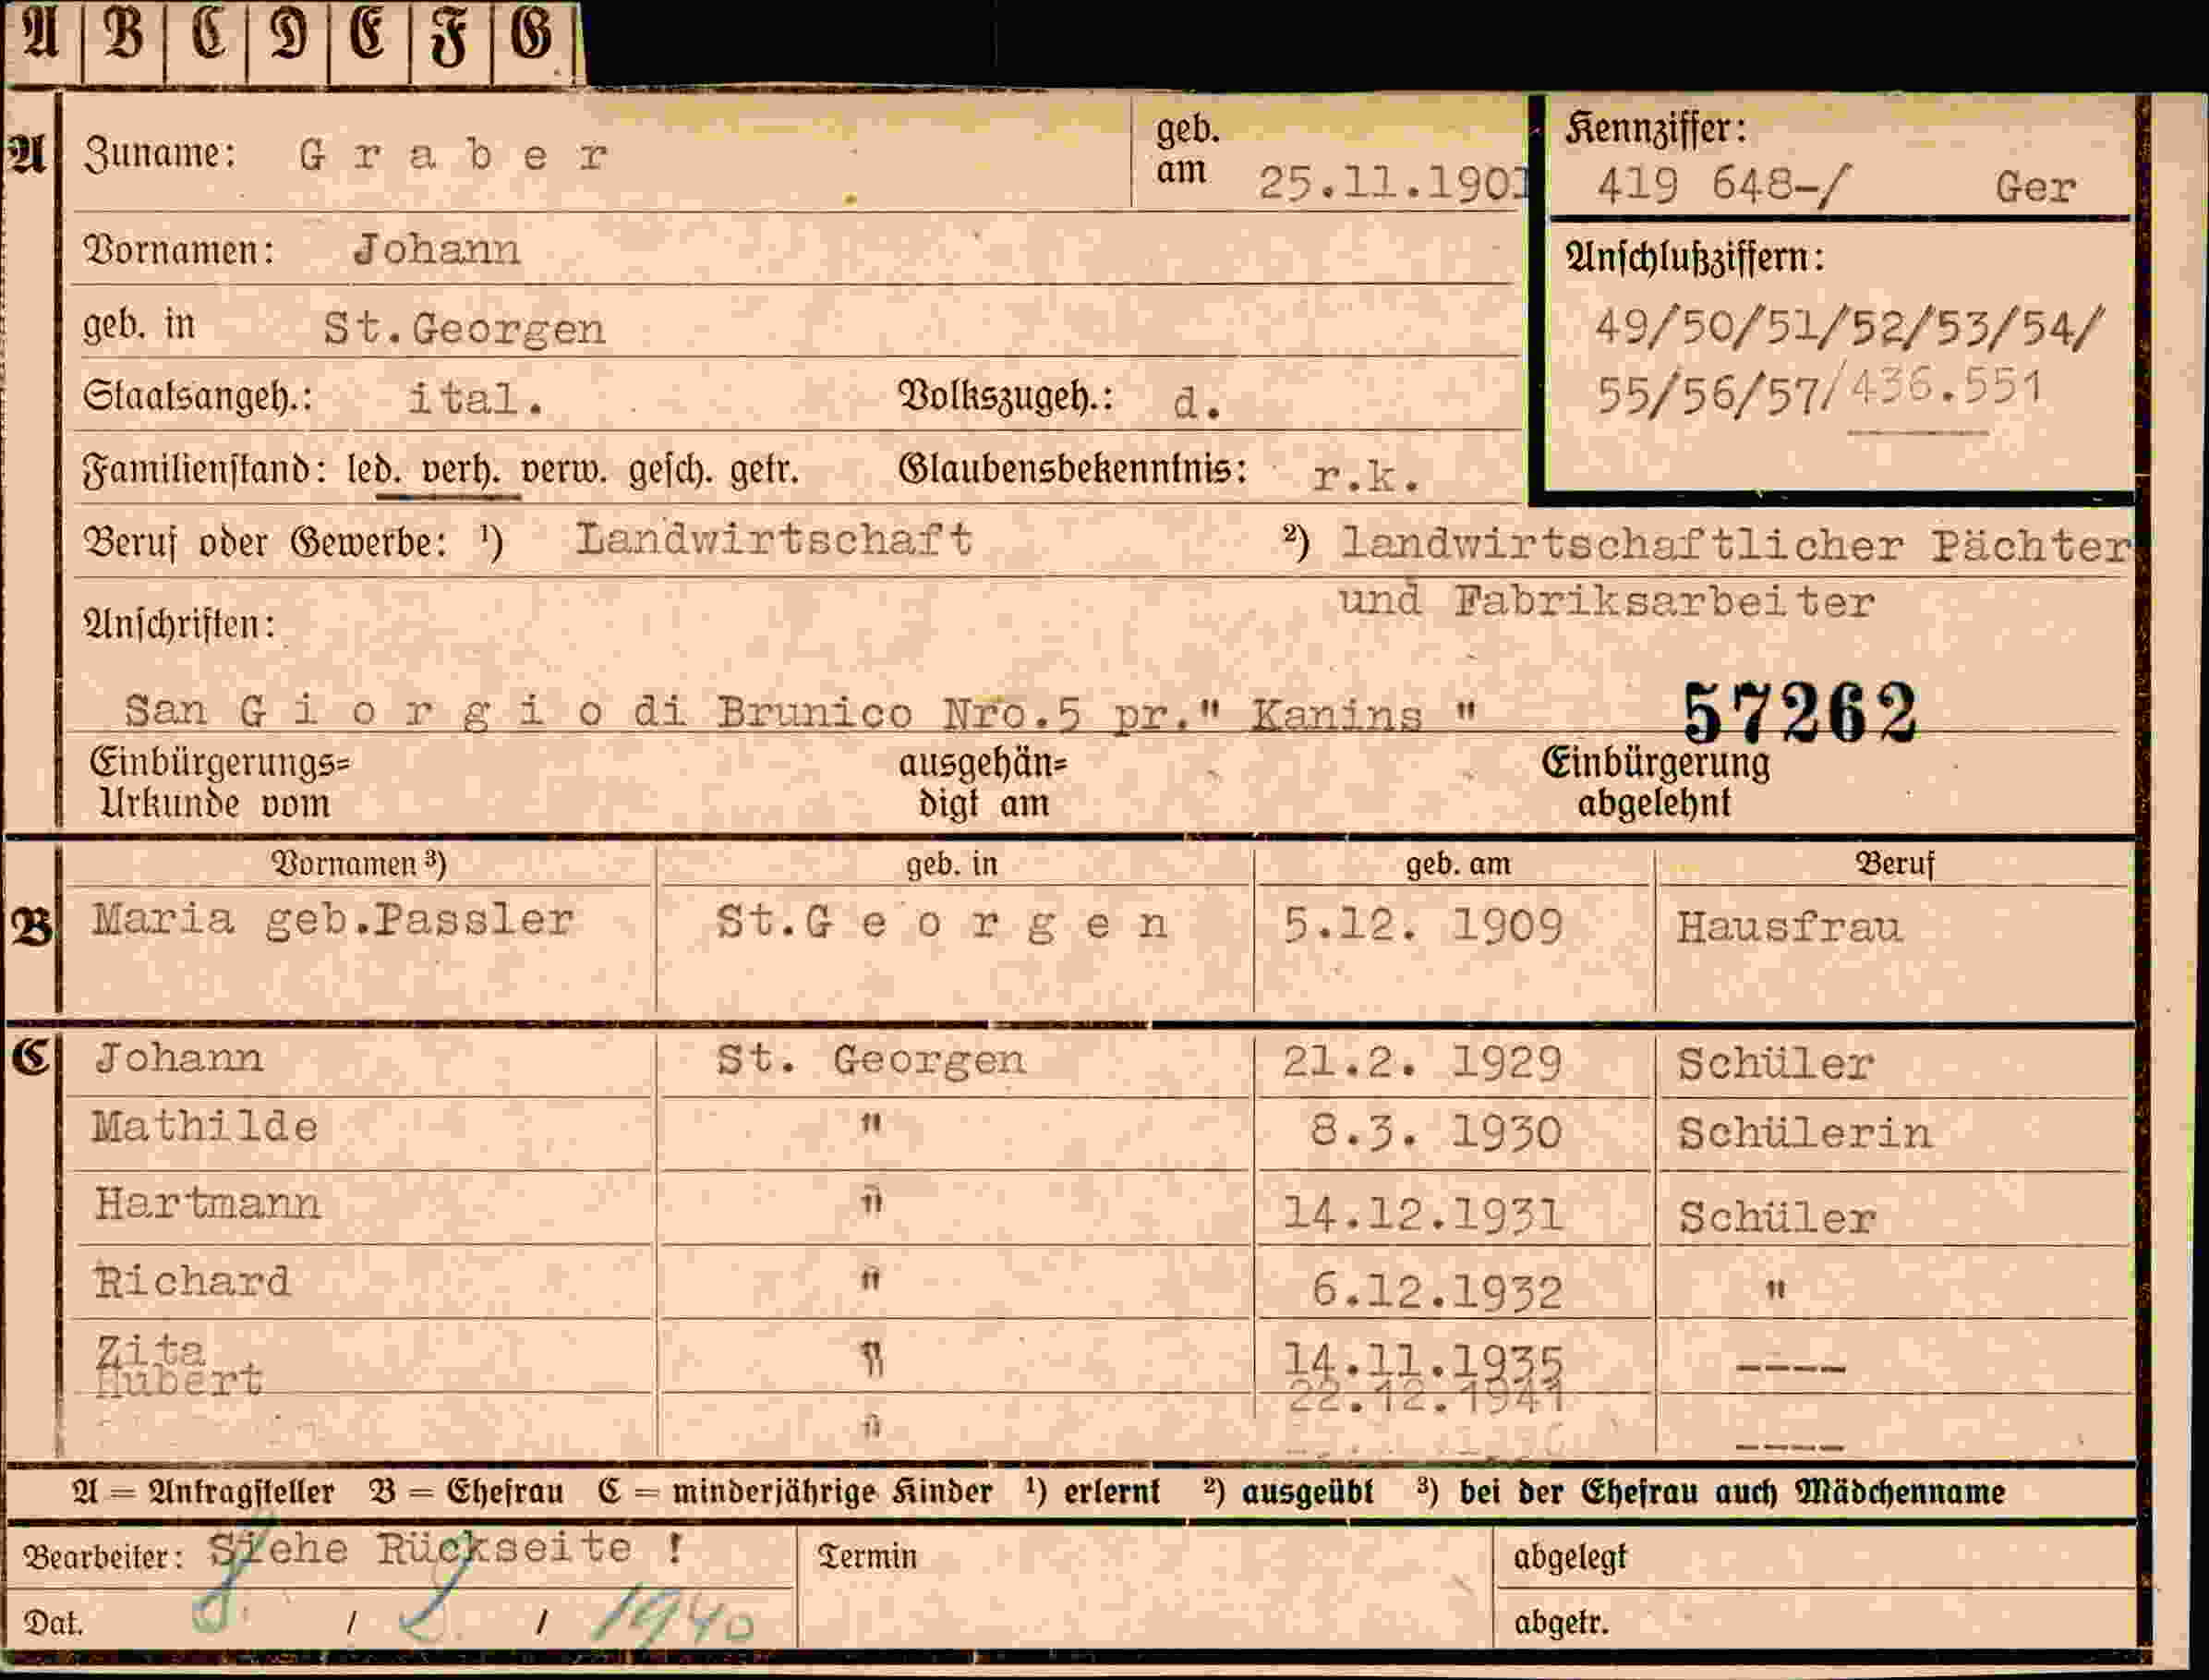 A B C D E F G
A Zuname: G r a b e r geb. am 25.11.1901
Kennziffer:
419 648-/ Ger
Vornamen: Johann
Anschlußziffern:
geb. in St.Georgen
49/50/51/52/53/54/
Staatsangeh.: ital. Volkszugeh.: d.
55/56/57/436.551
Familienstand: led. verh. verw. gesch. getr. Glaubensbekenntnis: r.k.
Beruf oder Gewerbe: ¹) Landwirtschaft ²) landwirtschaftlicher Pächter
und Fabriksarbeiter
Anschriften:
San G i o r g i o di Brunico Nro.5 pr." Kanins " 57262
Einbürgerungs= ausgehän= Einbürgerung
Urkunde vom digt am abgelehnt
Vornamen ³) geb. in geb. am Beruf
B Maria geb.Passler St.G e o r g e n 5.12. 1909 Hausfrau
C Johann St. Georgen 21.2. 1929 Schüler
Mathilde " 8.3. 1930 Schülerin
Hartmann " 14.12.1931 Schüler
Richard " 6.12.1932 "
Zita " 14.11.1935 ----
Hubert 22.12.1941
" ----
A = Antragsteller B = Ehefrau C = minderjährige Kinder ¹) erlernt ²) ausgeübt ³) bei der Ehefrau auch Mädchenname
Bearbeiter: Siehe Rückseite ! Termin abgelegt
Dat. 8. / 2. / 1940 abgetr.